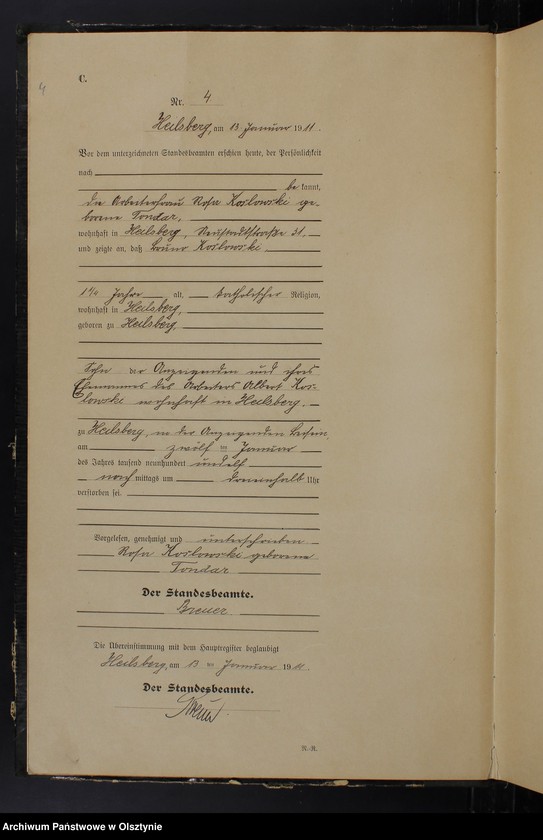 4
C.
Nr. 4
Heilsberg, am 13 Januar 1911.
Vor dem unterzeichneten Standesbeamten erschien heute, der Persönlichkeit
nach
be kannt,
die Arbeiterfrau Rosa Koslowski ge-
borene Tondar,
wohnhaft in Heilsberg, Neustadtstraße 31.
und zeigte an, daß Bruno Koslowski,
Jahre alt, katholischer Religion,
wohnhaft in Heilsberg,
geboren zu Heilsberg,
Sohn der Anzeigenden und ihres
Ehemannes des Arbeiters Albert Kos-
lowski wohnhaft in Heilsberg,
zu Heilsberg, in der Anzeigenden
am zwölf ten Januar
des Jahres tausend neunhundert und elf
nach mittags um Uhr
verstorben sei.
Vorgelesen, genehmigt und unterschrieben
Rosa Koslowski geborene
Tondar
Der Standesbeamte.
Breuer.
Die Übereinstimmung mit dem Hauptregister beglaubigt
Heilsberg, am 13 ten Januar 1911.
Der Standesbeamte.
Breuer.
N.-R.
Archiwum Państwowe w Olsztynie